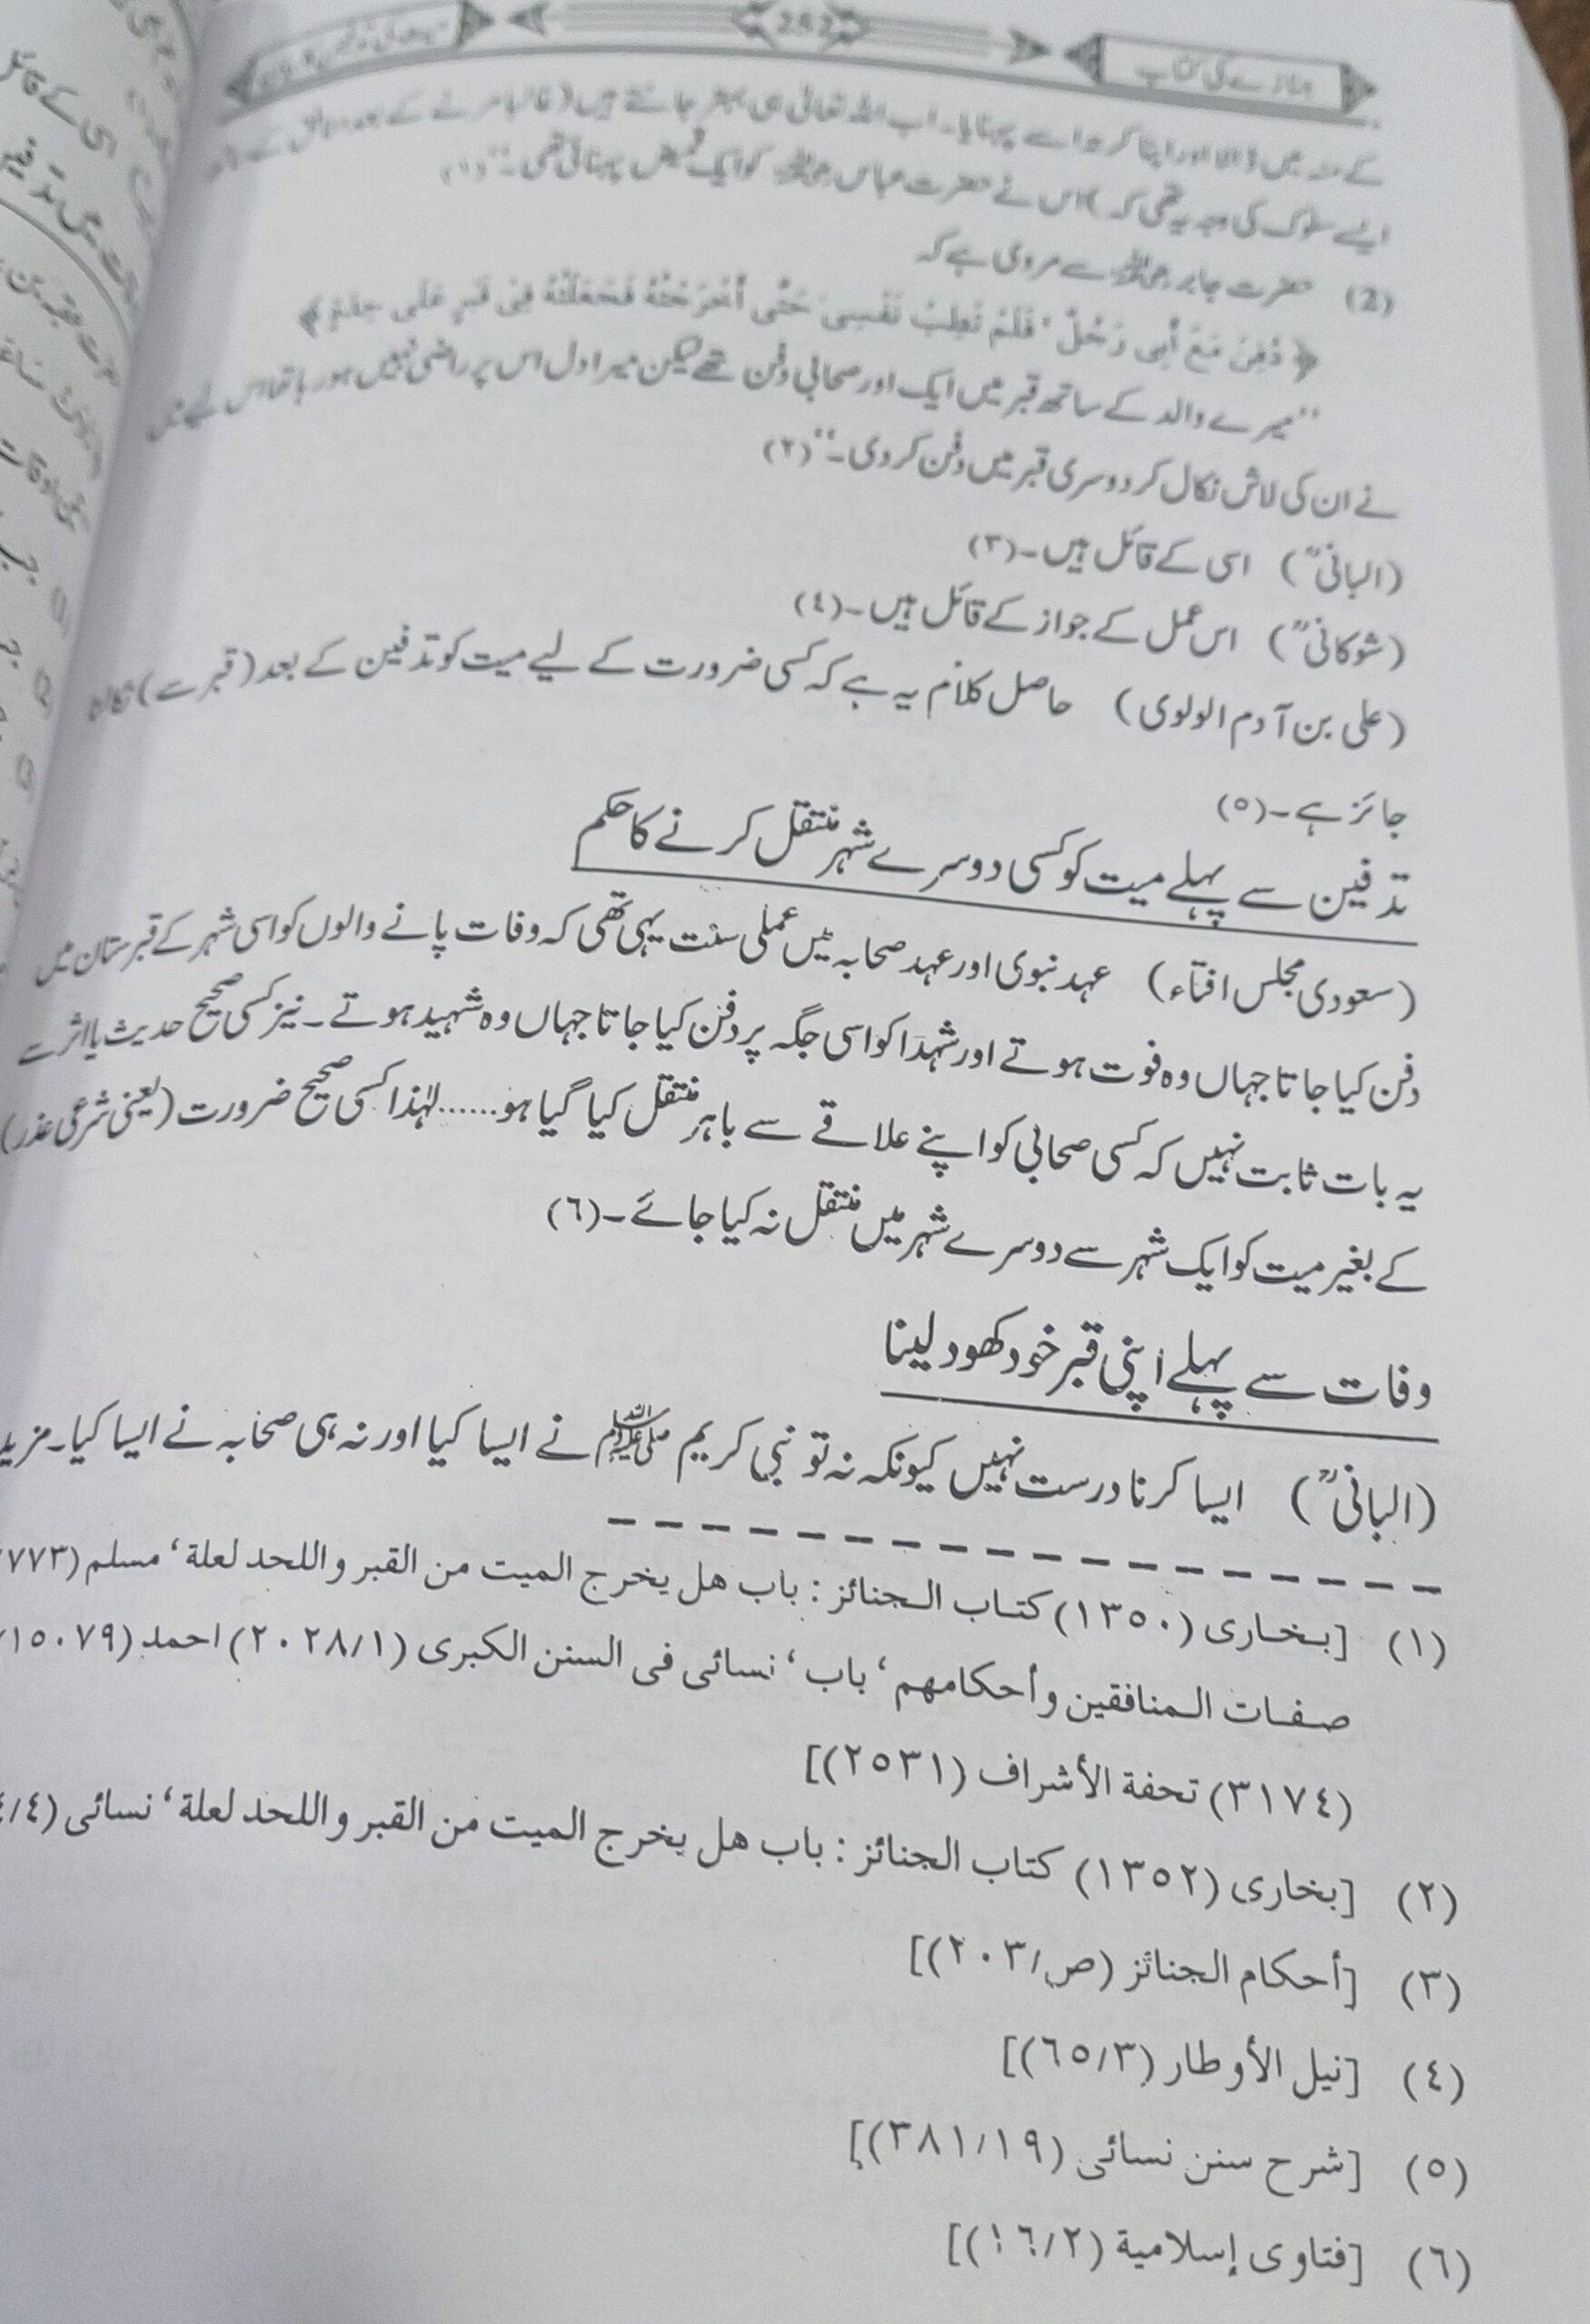 جنازے کی کتاب
252
کے منہ میں ڈالا اور اپنا کرتہ اسے پہنایا۔ اب اللہ تعالیٰ ہی بہتر جانتے ہیں (غالباً مرنے کے بعد
ایسے سلوک کی وجہ یہ تھی کہ) اس نے حضرت عباس رضی اللہ عنہ کو ایک قمیض پہنائی تھی۔‘‘ (۱)
(2) حضرت جابر رضی اللہ عنہ سے مروی ہے کہ
﴿ دُفِنَ مَعَ أَبِى رَجُلٌ ' فَلَمْ تَطِبْ نَفْسِى حَتَّى أَخْرَجْتُهُ فَجَعَلْتُهُ فِى قَبْرٍ عَلَى حِدَةٍ ﴾
’’میرے والد کے ساتھ قبر میں ایک اور صحابی دفن تھے لیکن میرا دل اس پر راضی نہیں ہو رہا تھا اس لیے میں
نے ان کی لاش نکال کر دوسری قبر میں دفن کر دی۔‘‘ (۲)
(البانیؒ) اسی کے قائل ہیں۔ (۳)
(شوکانیؒ) اس عمل کے جواز کے قائل ہیں۔ (٤)
(علی بن آدم الولوی) حاصل کلام یہ ہے کہ کسی ضرورت کے لیے میت کو تدفین کے بعد (قبر سے) نکالنا
جائز ہے۔ (٥)
تدفین سے پہلے میت کو کسی دوسرے شہر منتقل کرنے کا حکم
(سعودی مجلس افتاء) عہد نبوی اور عہد صحابہ میں عملی سنت یہی تھی کہ وفات پانے والوں کو اسی شہر کے قبرستان میں
دفن کیا جاتا جہاں وہ فوت ہوتے اور شہدا کو اسی جگہ پر دفن کیا جاتا جہاں وہ شہید ہوتے۔ نیز کسی صحیح حدیث یا اثر سے
یہ بات ثابت نہیں کہ کسی صحابی کو اپنے علاقے سے باہر منتقل کیا گیا ہو...... لہٰذا کسی صحیح ضرورت (یعنی شرعی عذر)
کے بغیر میت کو ایک شہر سے دوسرے شہر میں منتقل نہ کیا جائے۔ (٦)
وفات سے پہلے اپنی قبر خود کھود لینا
(البانیؒ) ایسا کرنا درست نہیں کیونکہ نہ تو نبی کریم ﷺ نے ایسا کیا اور نہ ہی صحابہ نے ایسا کیا۔ مزید
(۱) [بخاری (۱۳٥۰) کتاب الجنائز : باب هل یخرج المیت من القبر واللحد لعلة ' مسلم (۷۷۳
صفات المنافقین وأحکامهم ' باب ' نسائی فی السنن الکبری (۲۰۲۸/۱) احمد (۱٥۰۷۹
(۳۱۷٤) تحفة الأشراف (۲٥۳۱)]
(۲) [بخاری (۱۳٥۲) کتاب الجنائز : باب هل یخرج المیت من القبر واللحد لعلة ' نسائی (٤/
(۳) [أحکام الجنائز (ص/۲۰۳)]
(٤) [نیل الأوطار (٦٥/۳)]
(٥) [شرح سنن نسائی (۳۸۱/۱۹)]
(٦) [فتاوی إسلامیة (۱٦/۲)]